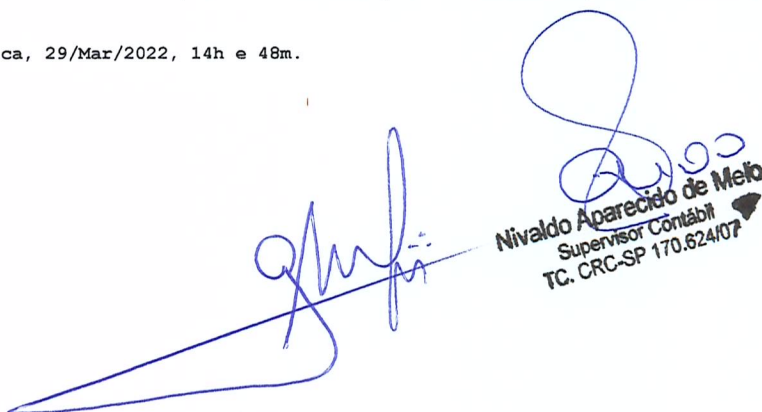 ca, 29/Mar/2022, 14h e 48m.
Nivaldo Aparecido de Melo
Supervisor Contábil
TC. CRC-SP 170.624/07